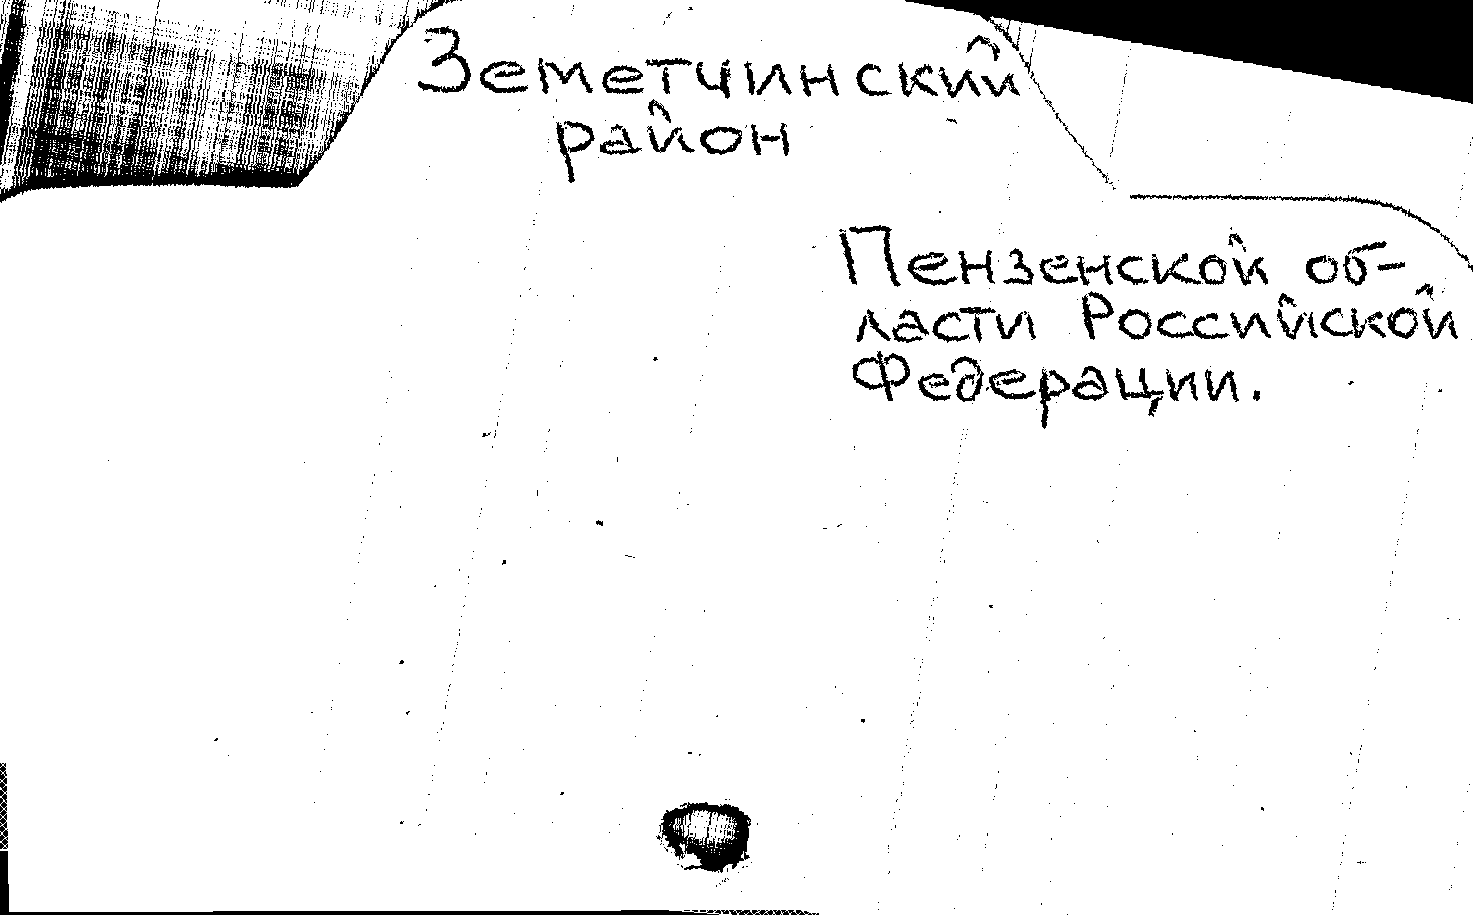 Земетчинский
район
Пензенской об-
ласти Российской
Федерации.